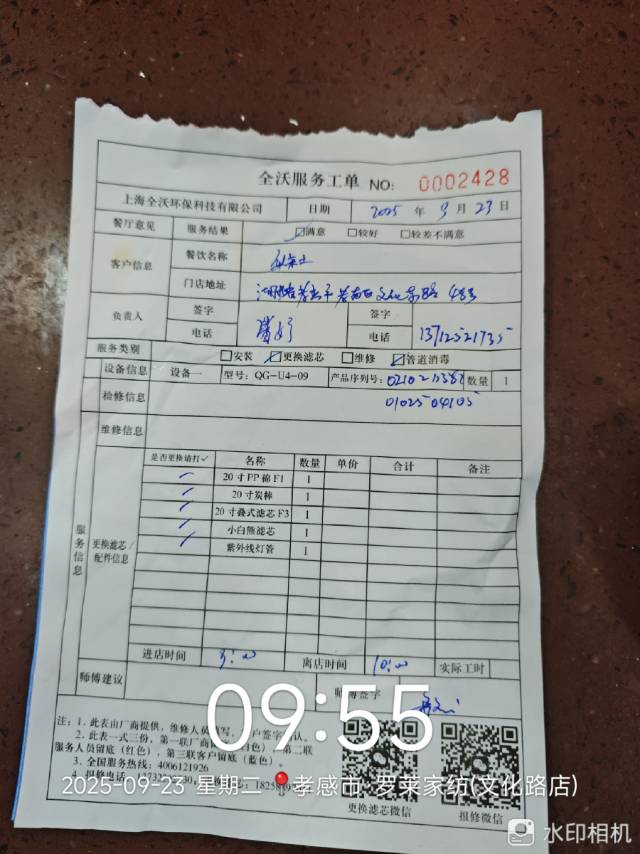 全沃服务工单 NO: 0002428
上海全沃环保科技有限公司 日期 2025 年 9 月 23 日
餐厅意见 服务结果 ☑满意 □较好 □较差不满意
客户信息 餐饮名称
门店地址 483
负责人 签字 签字
电话 电话 13712521735
服务类别 □安装 ☑更换滤芯 □维修 ☑管道消毒
设备信息 设备一 型号: QG-U4-09 产品序列号: 数量 1
检修信息 0102504105
维修信息
服务信息
更换滤芯/配件信息
是否更换请打✓ 名称 数量 单价 合计 备注
✓ 20寸PP棉F1 1
✓ 20寸炭棒 1
✓ 20寸叠式滤芯F3 1
✓ 小白熊滤芯 1
✓ 紫外线灯管 1
进店时间 离店时间 10:00 实际工时
师傅建议 师傅签字
注: 1. 此表由厂商提供, 维修人员
2. 此表一式三份, 第一联厂商 第二联
服务人员留底 (红色), 第三联客户留底 (蓝色)。
3. 全国服务热线: 4006121926
4. 报修电话
更换滤芯微信 报修微信
09:55
2025-09-23 星期二 孝感市·罗莱家纺(文化路店)
水印相机